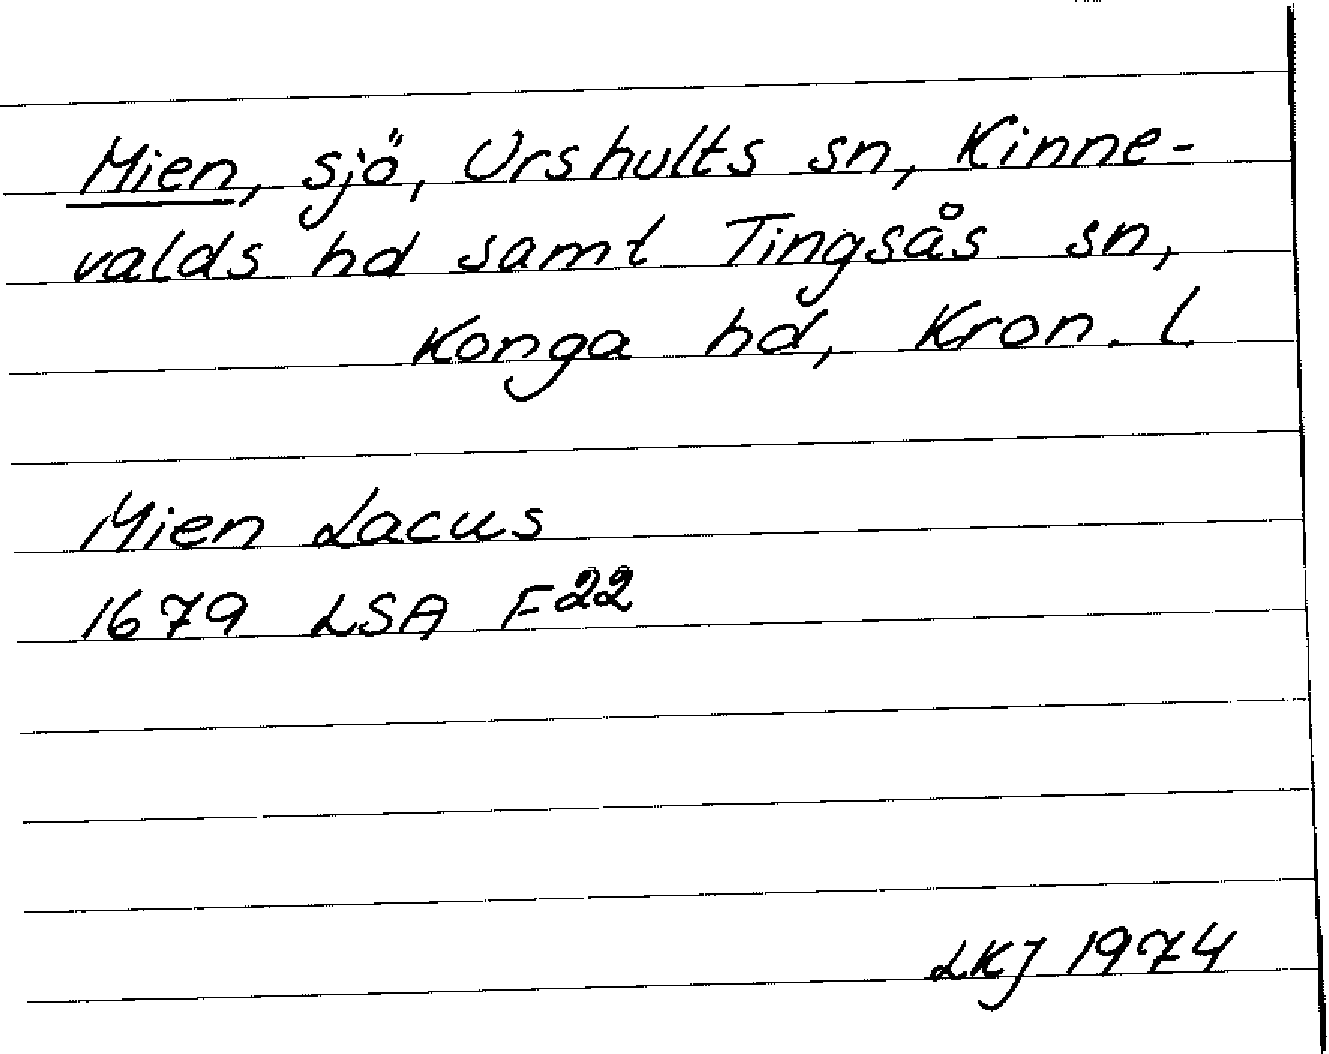 Mien, sjö, Urshults sn, Kinne-
valds hd samt Tingsås sn,
Konga hd, Kron. l.
Mien Lacus
1679 LSA F22
LKJ 1974